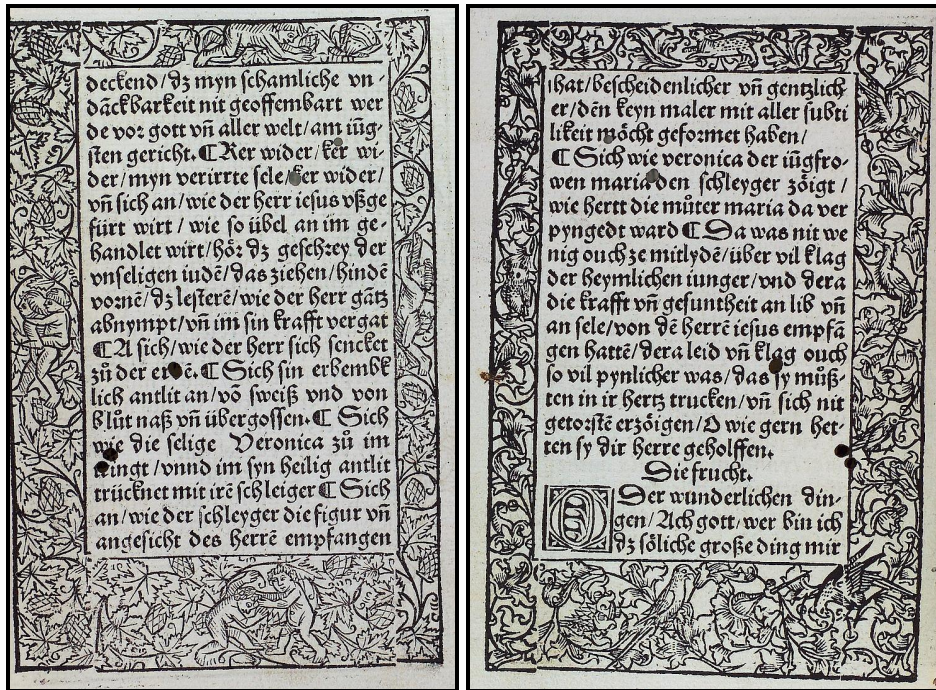 deckend/dz myn schamliche vn-
dāckbarkeit nit geoffembart wer
de vor gott vn̄ aller welt/am iūg-
sten gericht. ¶ Ker wider/ker wi-
der/myn verirrte sele/ker wider/
vn̄ sich an/wie der herr iesus vßge
fürt wirt/wie so übel an im ge-
handlet wirt/hör dz geschrey der
vnseligen iudē/das ziehen/hindē
vornē/dz lesterē/wie der herr gātz
abnympt/vn̄ im sin krafft vergat
¶ A sich/wie der herr sich sencket
zů der erdē. ¶ Sich sin erbembk
lich antlit an/vō sweiß vnd von
blůt naß vn̄ übergossen. ¶ Sich
wie die selige Veronica zů im
tringt/vnnd im syn heilig antlit
trücknet mit irē schleiger ¶ Sich
an/wie der schleyger die figur vn̄
angesicht des herrē empfangen
hat/bescheidenlicher vn̄ gentzlich
er/dēn keyn maler mit aller subti
likeit möcht geformet haben/
¶ Sich wie veronica der iūgfro-
wen maria den schleyger zöigt/
wie hertt die můter maria da ver
pyngedt ward ¶ Da was nit we
nig ouch ze mitlydē/über vil klag
der heymlichen iunger/vnd dera
die krafft vn̄ gesuntheit an lib vn̄
an sele/von dē herrē iesus empfā
gen hattē/dera leid vn̄ klag ouch
so vil pynlicher was/das sy můß-
ten in ir hertz trucken/vn̄ sich nit
getorstē erzöigen/O wie gern het-
ten sy dir herre geholffen.
Die frucht.
O Der wunderlichen din-
gen/Ach gott/wer bin ich
dz söliche große ding mir